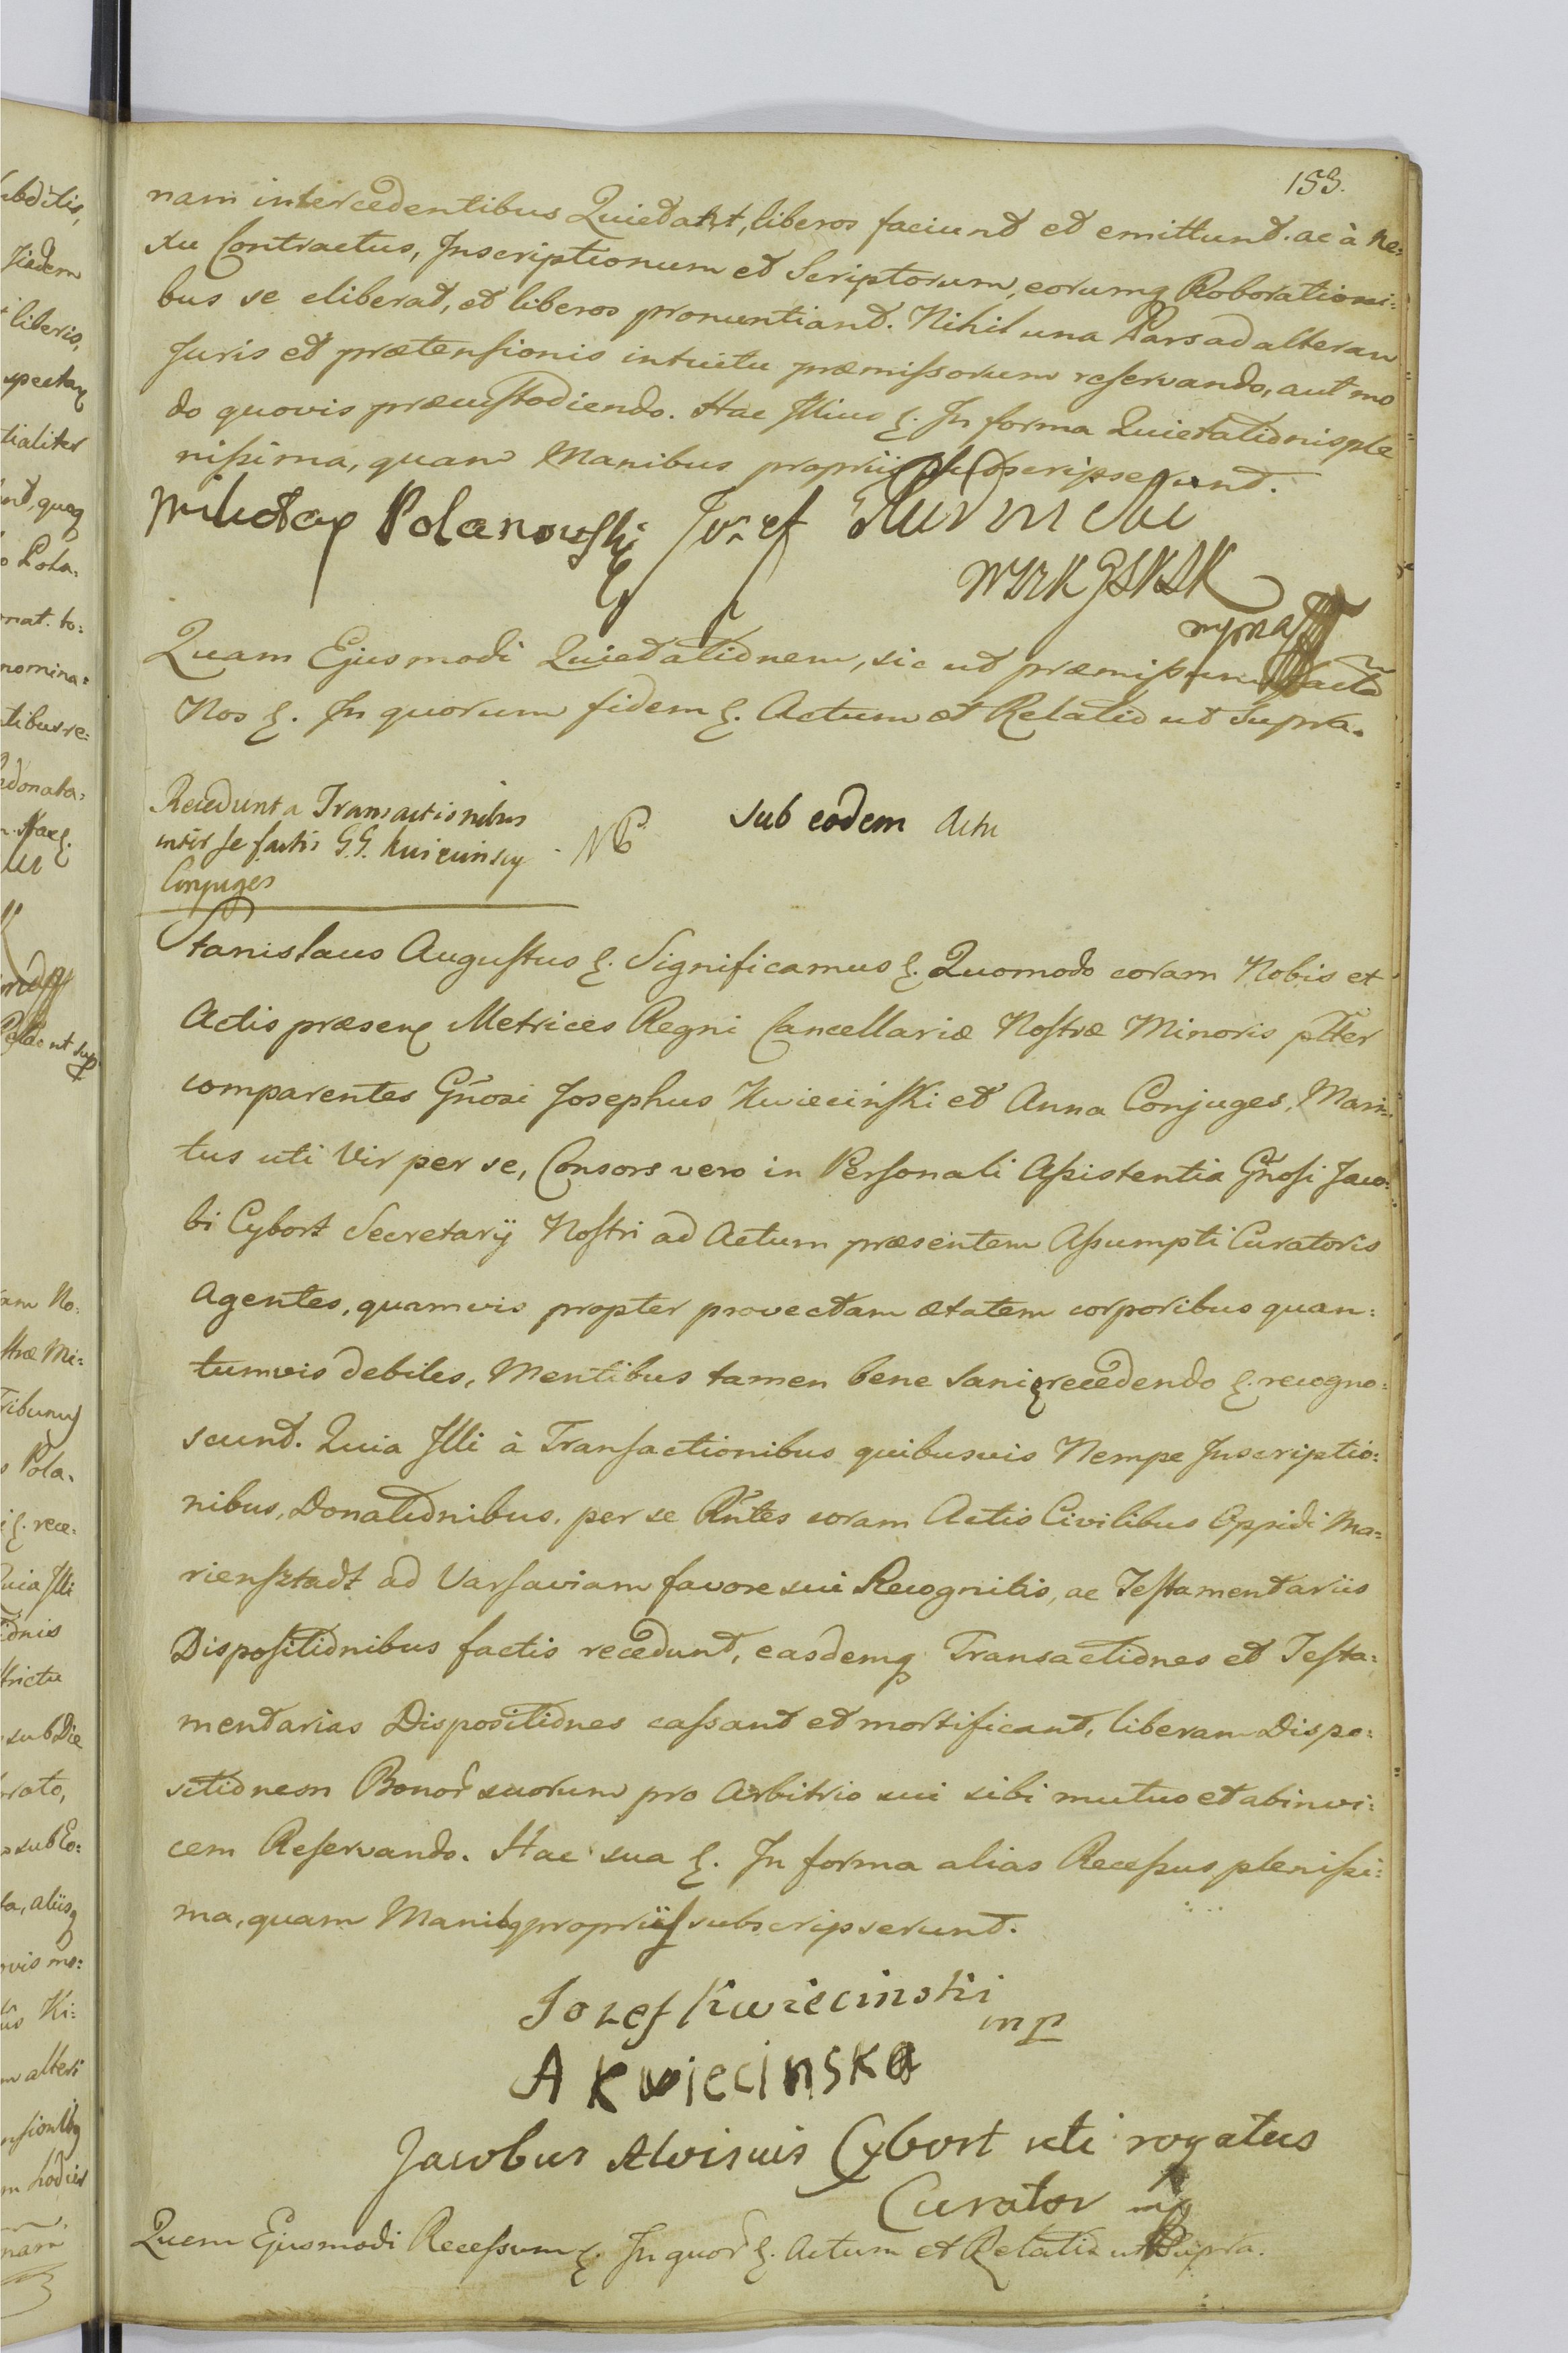 153.
nam intercedentibus Quietant, liberos faciunt et emittunt. ac à ne:
xu Contractus, Inscriptionum et Scriptorum, eorumq Roborationi:
bus se eliberat, et liberos pronuntiant. Nihil una Pars ad alteram
Juris et prætensionis intuitu præmissorum reservando, aut mo
do quovis præcustodiendo. Hac Illius &. In forma Quietationis ple
nissima, quam Manibus propriis subscripserunt.
Mikołay Polanowski Jozef
mpria
Quam Ejusmodi Quietationem, sic ut præmissum facta
Nos &. In quorum fidem &. Actum et Relatio ut Supra.
Recedunt a Transactionibus
inter se factis G.G. Kwiecinscy
Conjuges
sub eodem Actu
Stanislaus Augustus &. Significamus &. Quomodo coram Nobis et
Actis præsen Metrices Regni Cancellariæ Nostræ Minoris plter
comparentes Gnosi Josephus Kwiecinski et Anna Conjuges, Mari:
tus uti Vir per se, Consors vero in Personali Assistentia Gnosi Jaco:
bi Cybort Secretarij Nostri ad Actum præsentem Assumpti Curatoris
Agentes, quamvis propter provectam ætatem corporibus quan:
tumvis debiles, Mentibus tamen bene sani recedendo &. recogno:
scunt. Quia Illi à Transactionibus quibusvis Nempe Inscriptio:
nibus, Donationibus, per se Rntes coram Actis Civilibus Oppidi Ma:
riensztadt ad Varsaviam favore sui Recognitis, ac Testamentariis
Dispositionibus factis recedunt, easdemq Transactiones et Testa:
mentarias Dispositiones cassant et mortificant, liberam Dispo:
sitionem Bonor suorum pro Arbitrio sui sibi mutuo et abinvi:
cem Reservando. Hac sua &. In forma alias Recessus plenissi:
ma, quam Manibq propriis subscripserunt.
Jozef Kwiecinski
mp
A Kwiecinska
Jacobus Aloisius Cybort uti rogatus
Curator mp
Quem Ejusmodi Recessum &. In quor &. Actum et Relatio ut Supra.